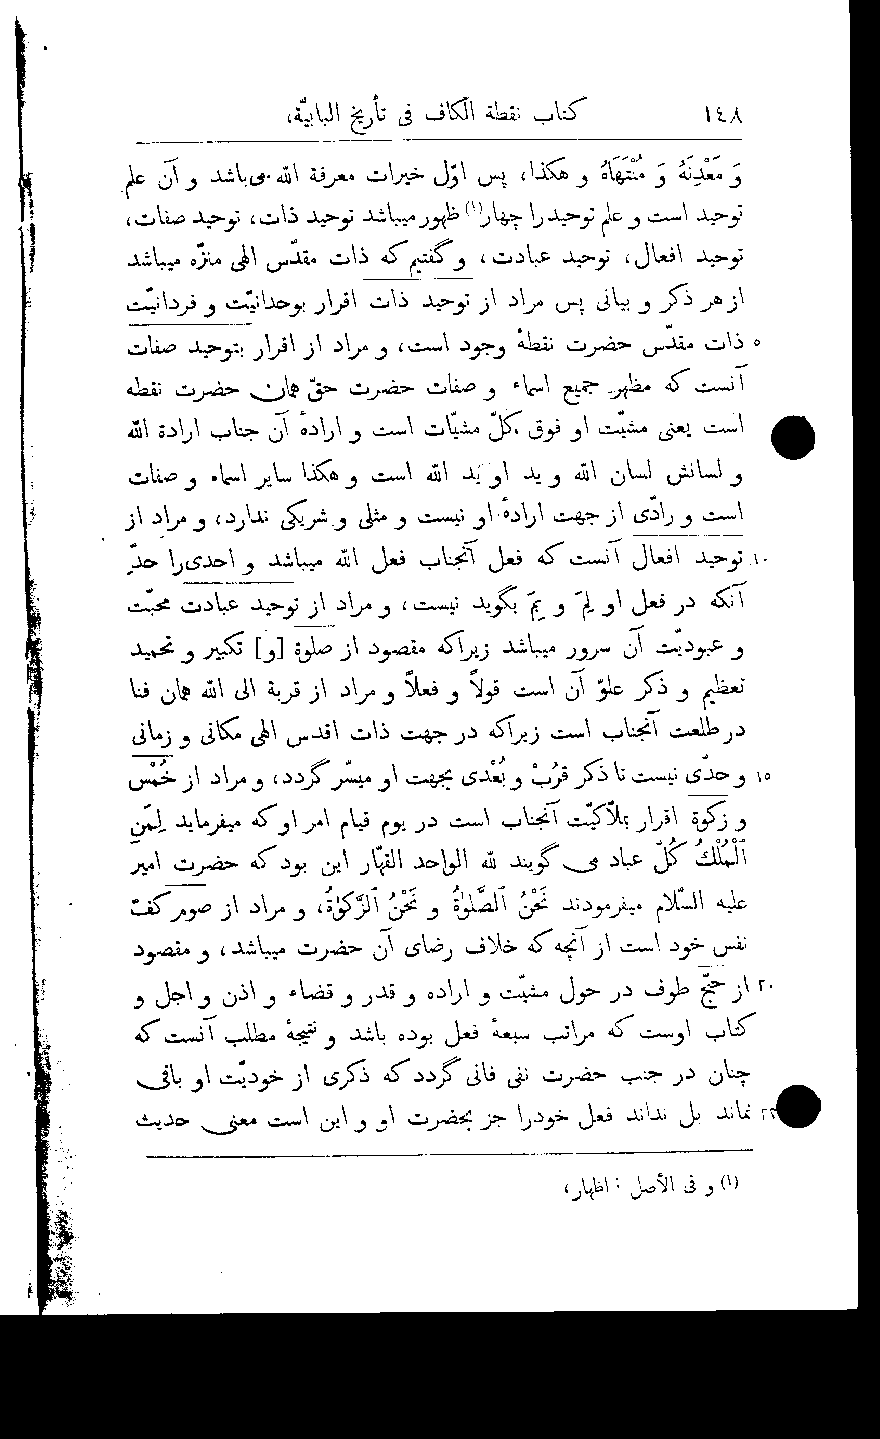 ١٤٨ کتاب نقطة الکاف فی تأریخ البابیّة،
وَ مَعْدِنَهُ وَ مُنْتَهَاهُ و هکذا، پس اوّل خیرات معرفة الله می‌باشد و آن علم
توحید است و علم توحیدرا چهار(١) ظهور میباشد توحید ذات، توحید صفات،
توحید افعال، توحید عبادت، و گفتیم که ذات مقدّس الهی منزّه میباشد
از هر ذکر و بیانی پس مراد از توحید ذات اقرار بوحدانیّت و فردانیّت
٥ ذات مقدّس حضرت نقطهٔ وجود است، و مراد از اقرار بتوحید صفات
آنست که مظهر جمیع اسماء و صفات حضرت حقّ همان حضرت نقطه
است یعنی مشیّت او فوق کلّ مشیّات است و ارادهٔ آن جناب ارادة الله
و لسانش لسان الله و ید او یَد الله است و هکذا سایر اسماء و صفات
است و رادّی از جهت ارادهٔ او نیست و مثلی و شریکی ندارد، و مراد از
١٠ توحید افعال آنست که فعل آنجناب فعل الله میباشد و احدی‌را حدّ
آنکه در فعل او لِمَ و بِمَ بگوید نیست، و مراد از توحید عبادت محبّت
و عبودیّت آن سرور میباشد زیراکه مقصود از صلوة [و] تکبیر و تحمید
تعظیم و ذکر علوّ آن است قولاً و فعلاً و مراد از قربة الی الله همان فنا
در طلعت آنجناب است زیراکه در جهت ذات اقدس الهی مکانی و زمانی
١٥ و حدّی نیست تا ذکر قُرْب و بُعْدی بجهت او میسّر گردد، و مراد از خُمْس
و زکوة اقرار بملاّکیّت آنجناب است در یوم قیام امر او که میفرماید لِمَنِ
ٱلْمُلْكُ کُلّ عباد می گویند لله الواحد القهّار این بود که حضرت امیر
علیه السّلام میفرمودند نَحْنُ ٱلصَّلوٰةُ و نَحْنُ ٱلزَّکوٰةُ، و مراد از صوم کفّ
نفس خود است از آنچه که خلاف رضای آن حضرت میباشد، و مقصود
٢٠ از حجّ طوف در حول مشیّت و اراده و قدر و قضاء و اذن و اجل و
کتاب اوست که مراتب سبعهٔ فعل بوده باشد و نتیجهٔ مطلب آنست که
چنان در جنب حضرت نفی فانی گردد که ذکری از خودیّت او باقی
نماند بل نداند فعل خودرا جز بحضرت او و این است معنی حدیث
(١) و فی الأصل : اظهار،